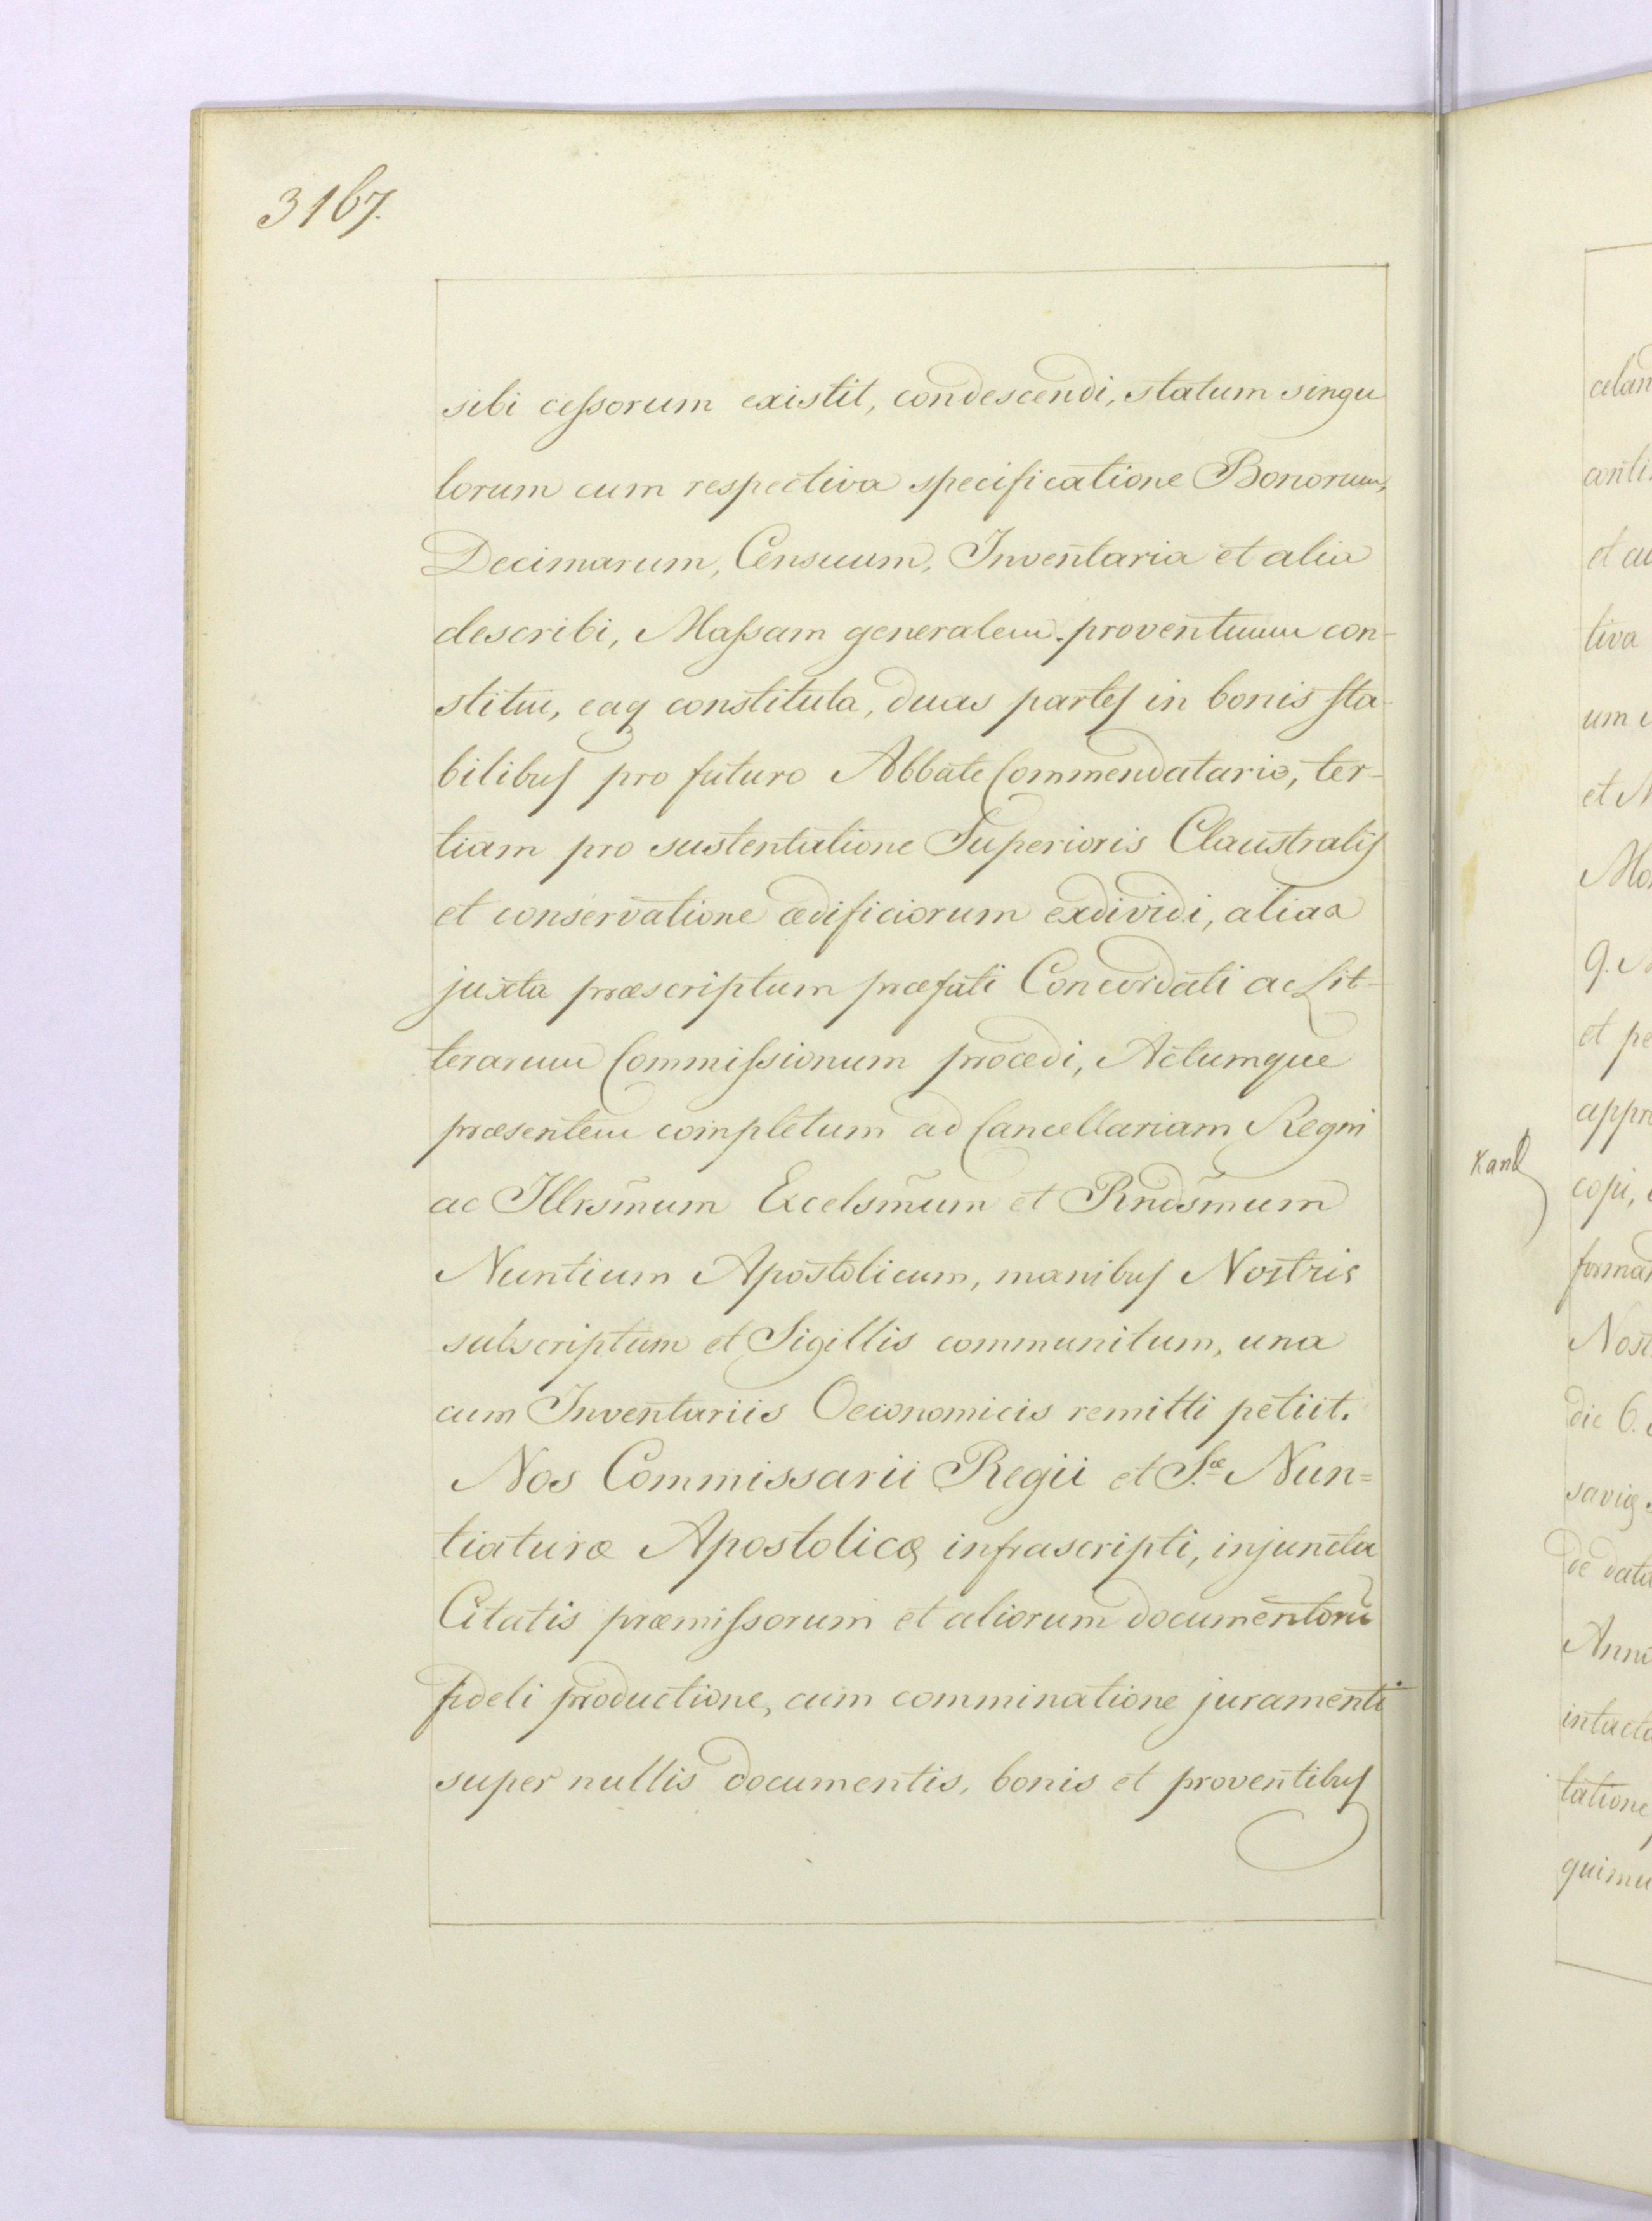 3167.
sibi cessorum existit, condescendi, statum singu
lorum cum respectiva specificatione Bonorum,
Decimarum, Censuum, Inventaria et alia
describi, Massam generalem proventuum con-
stitui, eaq constituta, duas partes in bonis sta-
bilibus pro futuro Abbate Commendatario, ter-
tiam pro sustentatione Superioris Claustralis
et conservatione ædificiorum exdividi, aliaa
juxta præscriptum præfati Concordati ac Lit-
terarum Commissionum procedi, Actumque
præsentem completum ad Cancellariam Regni
ac Illrsm̃um Excelsm̃um et Rndsm̃um
Nuntium Apostolicum, manibus Nostris
subscriptum et Sigillis communitum, una
cum Inventariis Oeconomicis remitti petiit.
Nos Commissarii Regii et S.æ Nun=
tiaturæ Apostolicæ infrascripti, injuncta
Citatis præmissorum et aliorum documentorũ
fideli productione, cum comminatione juramenti
super nullis documentis, bonis et proventibus
celan
anti
et au
tiva
um
et N
Mo
q.
et pe
appr
copi,
forma
Nost
die 6.
saviæ
de data
Anni
intacta
tatione
quimu